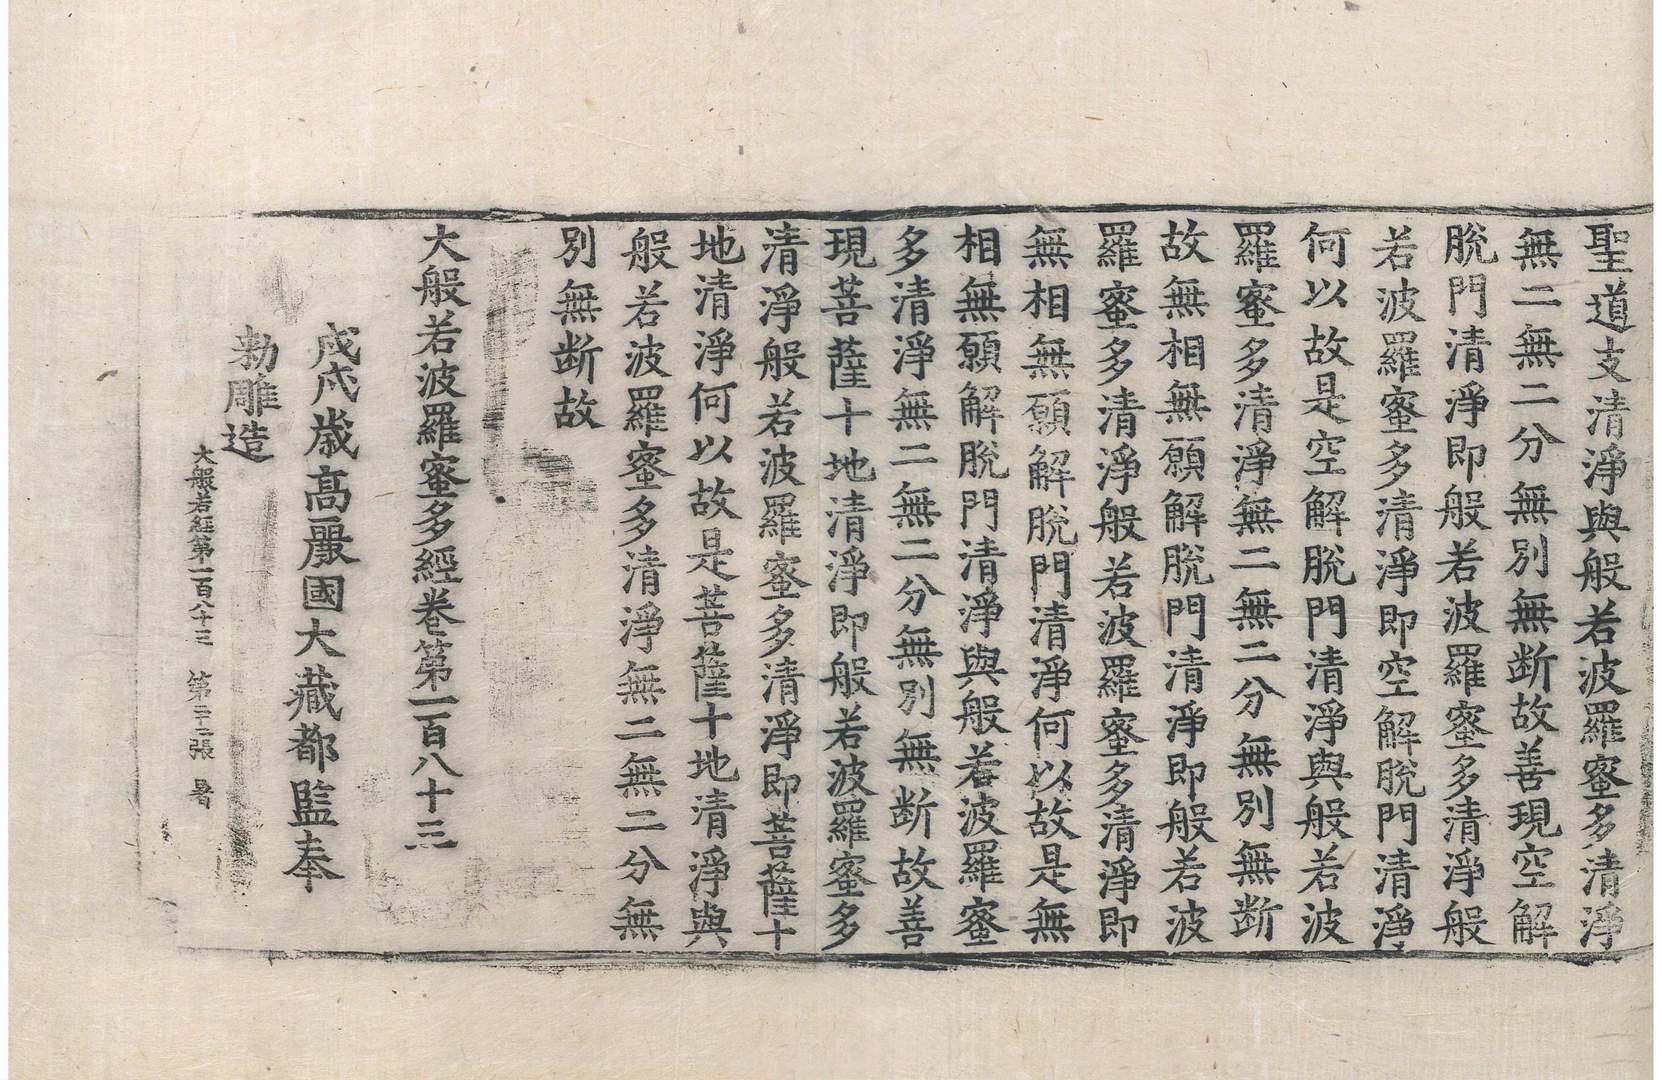 聖道支清淨與般若波羅蜜多清淨
無二無二分無別無断故善現空解
脫門清淨即般若波羅蜜多清淨般
若波羅蜜多清淨即空解脫門清淨
何以故是空解脫門清淨與般若波
羅蜜多清淨無二無二分無別無断
故無相無願解脫門清淨即般若波
羅蜜多清淨般若波羅蜜多清淨即
無相無願解脫門清淨何以故是無
相無願解脫門清淨與般若波羅蜜
多清淨無二無二分無別無断故善
現菩薩十地清淨即般若波羅蜜多
清淨般若波羅蜜多清淨即菩薩十
地清淨何以故是菩薩十地清淨與
般若波羅蜜多清淨無二無二分無
別無断故
大般若波羅蜜多經卷第一百八十三
戊戌歲高麗國大藏都監奉
勑雕造
大般若經第一百八十三 第二十二張